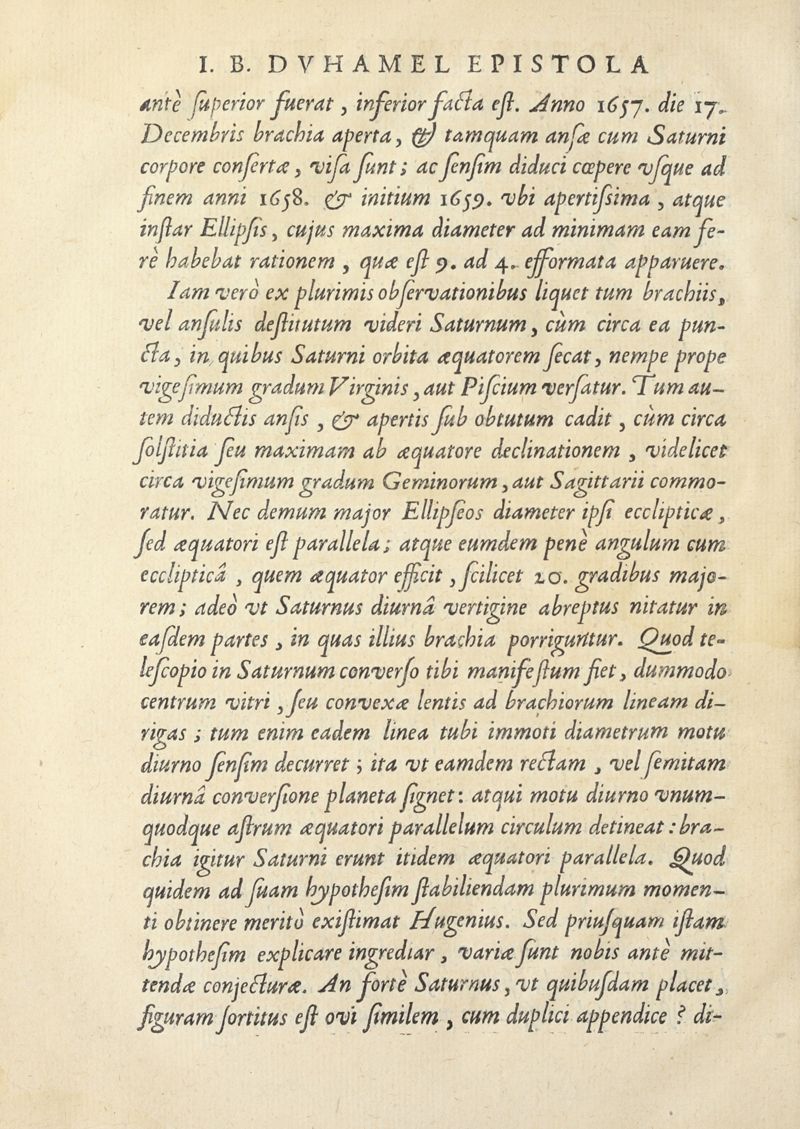 I. B. DVHAMEL EPISTOLA
antè ſuperior fuerat, inferior facta eſt. Anno 1657. die 17.
Decembris brachia aperta, & tamquam anſæ cum Saturni
corpore conſertæ, viſa ſunt; ac ſenſim diduci cœpere vſque ad
finem anni 1658. & initium 1659. vbi apertiſsima, atque
inſtar Ellipſis, cujus maxima diameter ad minimam eam fe-
rè habebat rationem, quæ eſt 9. ad 4. efformata apparuere.
Iam verò ex plurimis obſervationibus liquet tum brachiis,
vel anſulis deſtitutum videri Saturnum, cùm circa ea pun-
cta, in quibus Saturni orbita æquatorem ſecat, nempe prope
vigeſimum gradum Virginis, aut Piſcium verſatur. Tum au-
tem diductis anſis, & apertis ſub obtutum cadit, cùm circa
ſolſtitia ſeu maximam ab æquatore declinationem, videlicet
circa vigeſimum gradum Geminorum, aut Sagittarii commo-
ratur. Nec demum major Ellipſeos diameter ipſi eccliptiæ,
ſed æquatori eſt parallela; atque eumdem penè angulum cum
ecclipticâ, quem æquator efficit, ſcilicet 20. gradibus majo-
rem; adeò vt Saturnus diurnâ vertigine abreptus nitatur in
eaſdem partes, in quas illius brachia porriguntur. Quod te-
leſcopio in Saturnum converſo tibi manifeſtum fiet, dummodo
centrum vitri, ſeu convexæ lentis ad brachiorum lineam di-
rigas; tum enim eadem linea tubi immoti diametrum motu
diurno ſenſim decurret; ita vt eamdem rectam, vel ſemitam
diurnâ converſione planeta ſignet: atqui motu diurno vnum-
quodque aſtrum æquatori parallelum circulum detineat: bra-
chia igitur Saturni erunt itidem æquatori parallela. Quod
quidem ad ſuam hypotheſim ſtabiliendam plurimum momen-
ti obtinere meritò exiſtimat Hugenius. Sed priuſquam iſtam
hypotheſim explicare ingrediar, variæ ſunt nobis antè mit-
tendæ conjecturæ. An fortè Saturnus, vt quibuſdam placet,
figuram ſortitus eſt ovi ſimilem, cum duplici appendice? di-